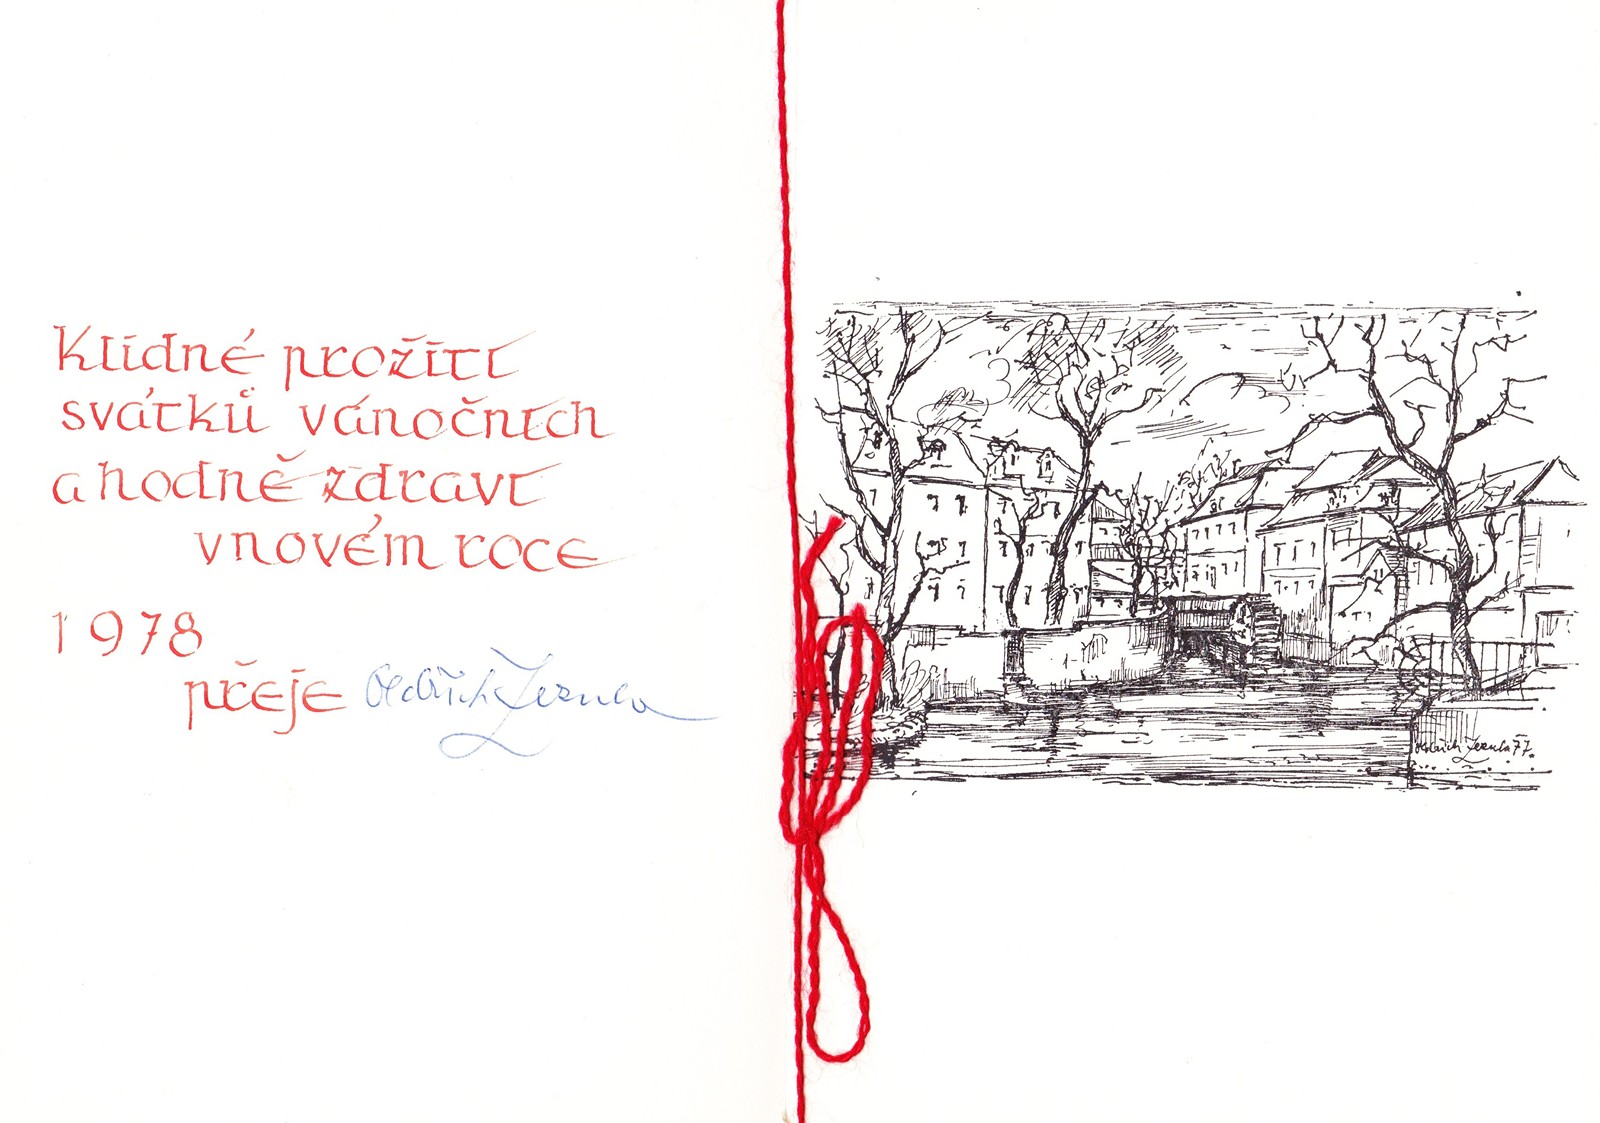 Klidné prožití
svátků vánočních
a hodně zdraví
v novém roce
1978
přeje Oldřich Zezula
Oldřich Zezula 77.